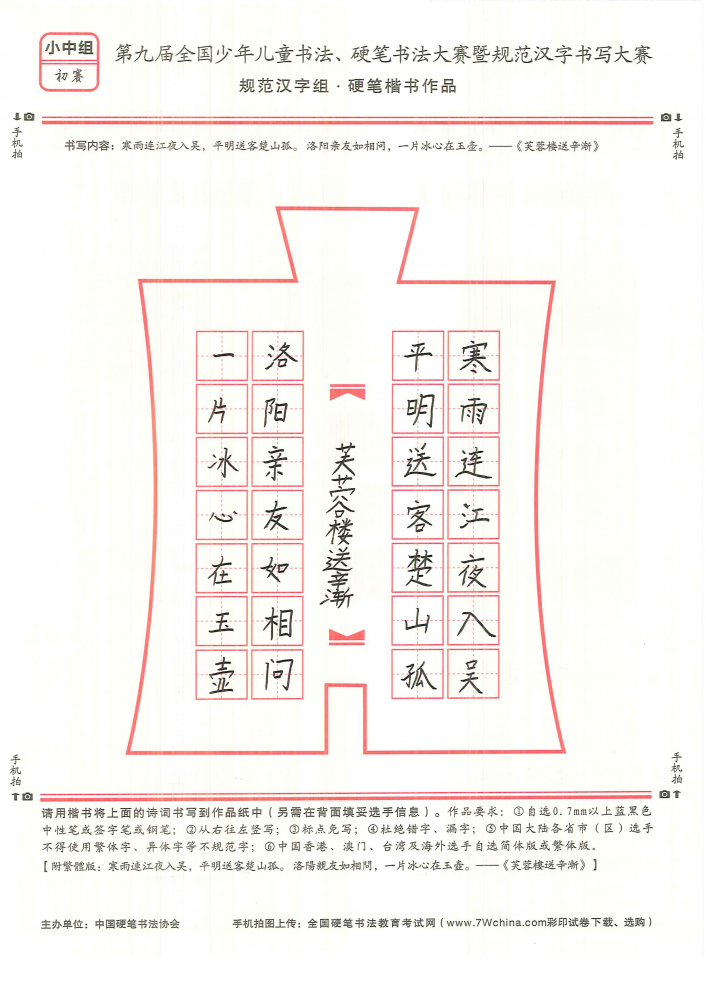 小中组
初赛
第九届全国少年儿童书法、硬笔书法大赛暨规范汉字书写大赛
规范汉字组·硬笔楷书作品
手机拍
手机拍
书写内容：寒雨连江夜入吴，平明送客楚山孤。洛阳亲友如相问，一片冰心在玉壶。——《芙蓉楼送辛渐》
寒雨连江夜入吴
平明送客楚山孤
芙蓉楼送辛渐
洛阳亲友如相问
一片冰心在玉壶
手机拍
手机拍
请用楷书将上面的诗词书写到作品纸中（另需在背面填妥选手信息）。作品要求：①自选0.7mm以上蓝黑色
中性笔或签字笔或钢笔；②从右往左竖写；③标点免写；④杜绝错字、漏字；⑤中国大陆各省市（区）选手
不得使用繁体字、异体字等不规范字；⑥中国香港、澳门、台湾及海外选手自选简体版或繁体版。
【附繁體版：寒雨連江夜入吴，平明送客楚山孤。洛陽親友如相問，一片冰心在玉壶。——《芙蓉樓送辛漸》】
主办单位：中国硬笔书法协会
手机拍图上传：全国硬笔书法教育考试网（www.7Wchina.com彩印试卷下载、选购）